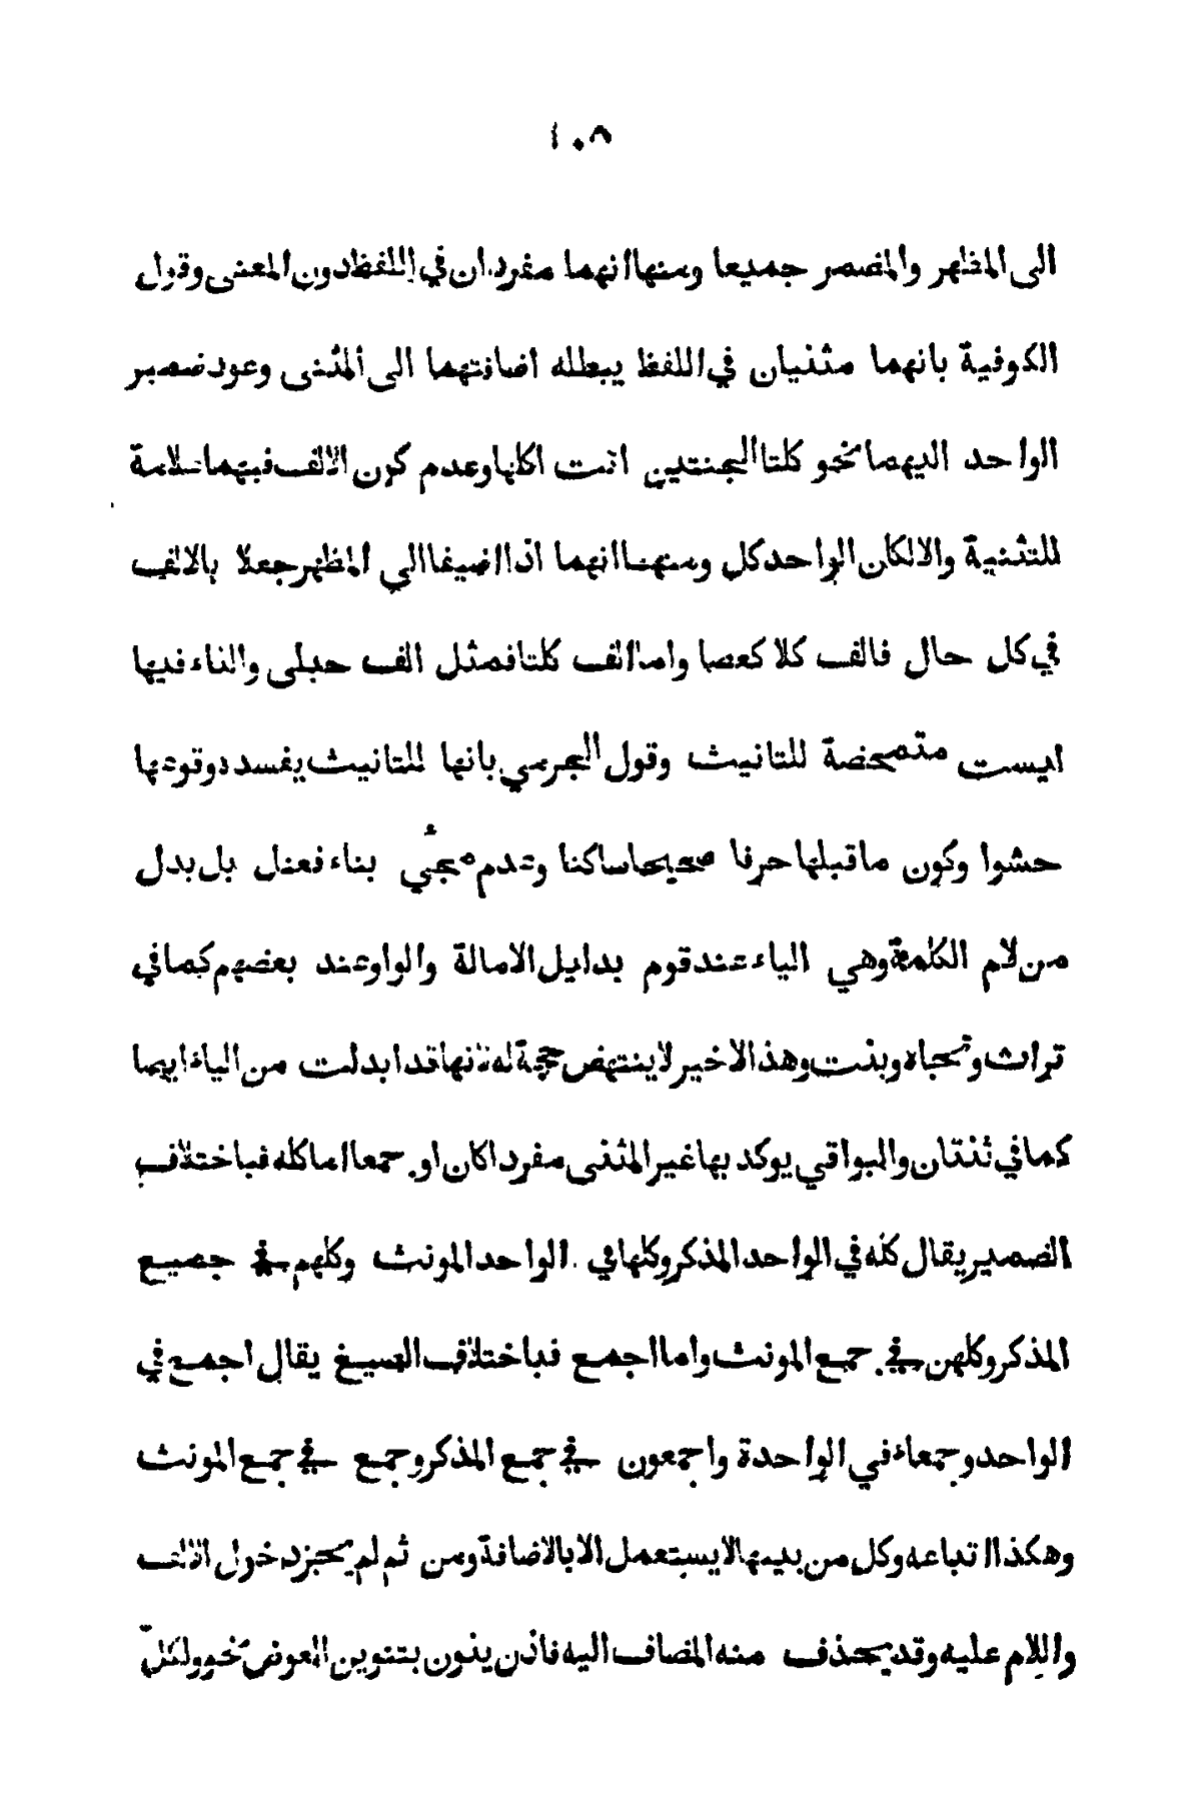 ١٠٨
الى المظهر والمضمر جميعا ومنها انهما مفردان في اللفظ دون المعنى وقول
الكوفية بانهما مثنيان في اللفظ يبطله اضافتهما الى المثنى وعود ضمير
الواحد اليهما نحو كلتا الجنتين اتت اكلها وعدم كون الالف فيهما علامة
للتثنية والا لكان الواحد كل ومنها انهما اذا اضيفا الي المظهر جعلا بالالف
في كل حال فالف كلا كعصا واما الف كلتا فمثل الف حبلى والتاء فيها
ليست متمحضة للتانيث وقول الجرمي بانها للتانيث يفسده وقوعها
حشوا وكون ما قبلها حرفا صحيحا ساكنا وعدم مجئي بناء فعتل بل بدل
من لام الكلمة وهي الياء عند قوم بدليل الامالة والواو عند بعضهم كما في
تراث وتجاه وبنت وهذ الاخير لا ينتهض حجة له لانها قد ابدلت من الياء ايضا
كما في ثنتان والبواقي يوكد بها غير المثنى مفردا كان او جمعا اما كله فباختلاف
الضمير يقال كله في الواحد المذكر وكلها في الواحد المونث وكلهم في جميع
المذكر وكلهن في جمع المونث واما اجمع فباختلاف الصيغ يقال اجمع في
الواحد وجمعاء في الواحدة واجمعون في جمع المذكر وجمع في جمع المونث
وهكذا اتباعه وكل من بينها لا يستعمل الا بالاضافة ومن ثم لم يجز دخول الالف
واللام عليه وقد يحذف منه المضاف اليه فاذن ينون بتنوين العوض نحو ولكلّ